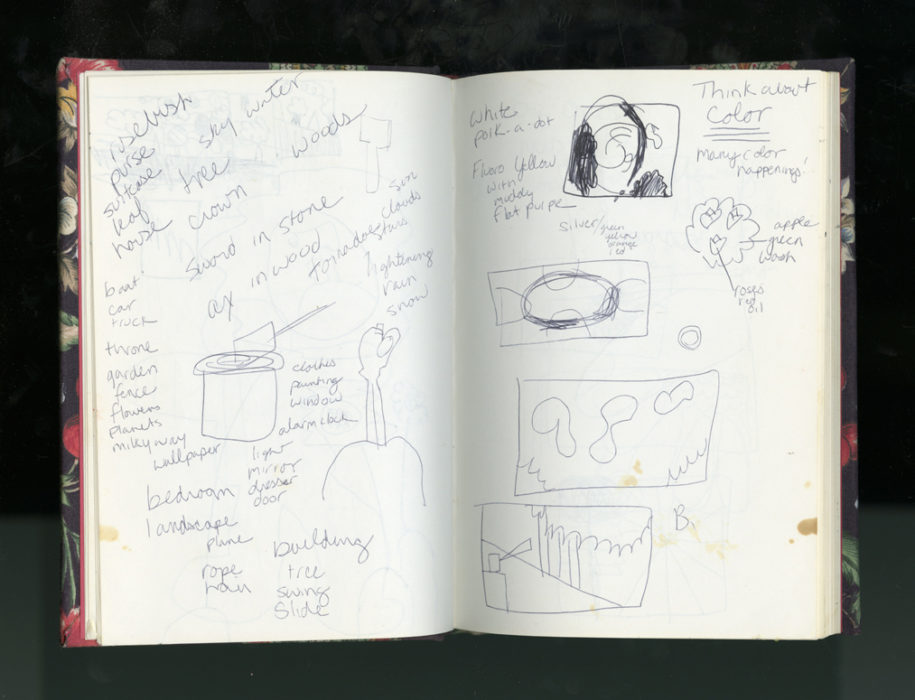 rosebush
purse
suitcase
leaf
house
sky water
tree
woods
crown
sword in stone
ax in wood
tornadoes
sun
clouds
stars
lightening
rain
snow
boat
car
truck
throne
garden
fence
flowers
planets
milky way
wallpaper
clothes
painting
window
alarm clock
light
mirror
dresser
door
bedroom
landscape
plane
building
rope
tree
swing
Slide
White
polk-a-dot
Fluoro Yellow
with
muddy
flat purple
silver/green
yellow
orange
red
Think about
Color
many color
happenings!
apple
green
wash
roses
red
oil
B.